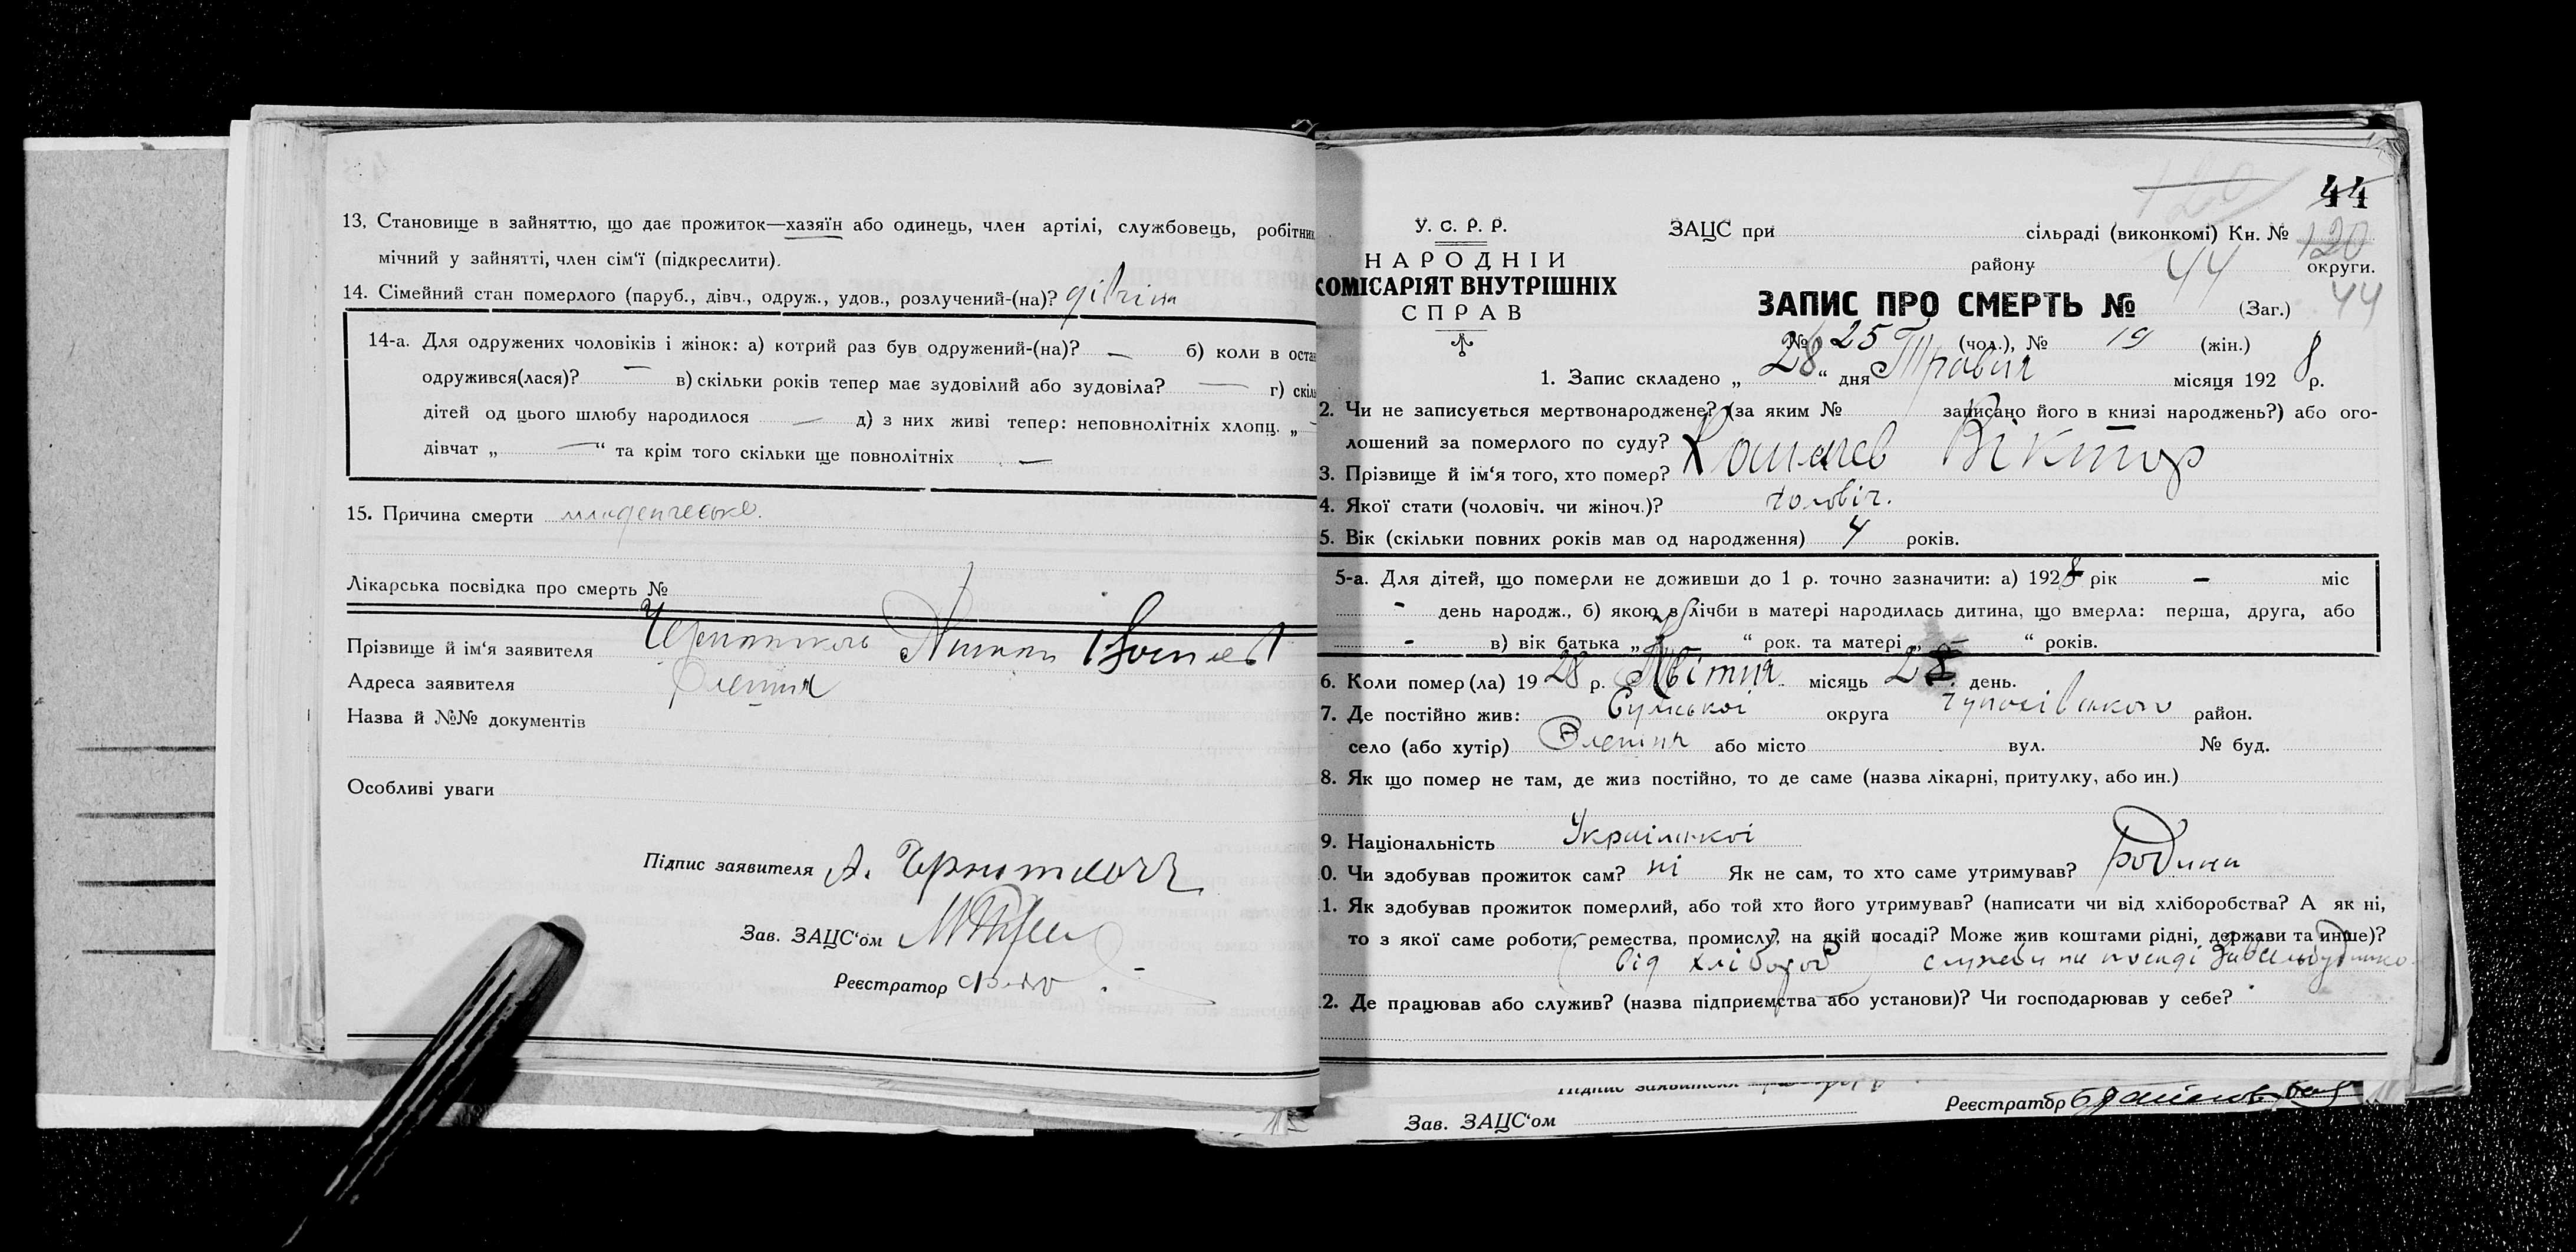 13. Становище в зайняттю, що дає прожиток—хазяїн або одинець, член артілі, службовець, робітник
мічний у зайнятті, член сім'ї (підкреслити).
14. Сімейний стан померлого (паруб., дівч., одруж., удов., розлучений-(на)? дівчина
14-а. Для одружених чоловіків і жінок: а) котрий раз був одружений-(на)? — б) коли в оста
одружився(лася)? — в) скільки років тепер має зудовілий або зудовіла? — г) скіль
дітей од цього шлюбу народилося — д) з них живі тепер: неповнолітніх хлопц. „ —
дівчат „ — “ та крім того скільки ще повнолітніх —
15. Причина смерти младенческе.
Лікарська посвідка про смерть №
Прізвище й ім'я заявителя
Адреса заявителя
Назва й №№ документів
Особливі уваги
Підпис заявителя А.
Зав. ЗАЦС'ом
Реєстратор
44
120
У. С. Р. Р.
НАРОДНІЙ
КОМІСАРІЯТ ВНУТРІШНІХ
СПРАВ
ЗАЦС при сільраді (виконкомі) Кн. № 120
району 44 округи.
ЗАПИС ПРО СМЕРТЬ № (Заг.) 44
№ 25 (чол.), № 19 (жін.)
1. Запис складено „ 28 “ дня Травня місяця 192 8 р.
2. Чи не записується мертвонароджене? (за яким № записано його в книзі народжень?) або ого-
лошений за померлого по суду?
3. Прізвище й ім'я того, хто помер? Віктор
4. Якої стати (чоловіч. чи жіноч.)? чоловіч.
5. Вік (скільки повних років мав од народження) 4 років.
5-а. Для дітей, що померли не доживши до 1 р. точно зазначити: а) 1928 рік — міс
- день народж., б) якою з лічби в матері народилась дитина, що вмерла: перша, друга, або
- в) вік батька „ “ рок. та матері „ “ років.
6. Коли помер(ла) 19 28 р. Квітня місяць день.
7. Де постійно жив: Сумської округа район.
село (або хутір) або місто вул. № буд.
8. Як що помер не там, де жив постійно, то де саме (назва лікарні, притулку, або ин.)
9. Національність Українкої
0. Чи здобував прожиток сам? ні Як не сам, то хто саме утримував? родина
1. Як здобував прожиток померлий, або той хто його утримував? (написати чи від хліборобства? А як ні,
то з якої саме роботи, ремества, промислу, на якій посаді? Може жив коштами рідні, держави та инше)?
від хлібороб служби на посаді
2. Де працював або служив? (назва підприємства або установи)? Чи господарював у себе?
Підпис заявителя
Зав. ЗАЦС'ом Реєстратор